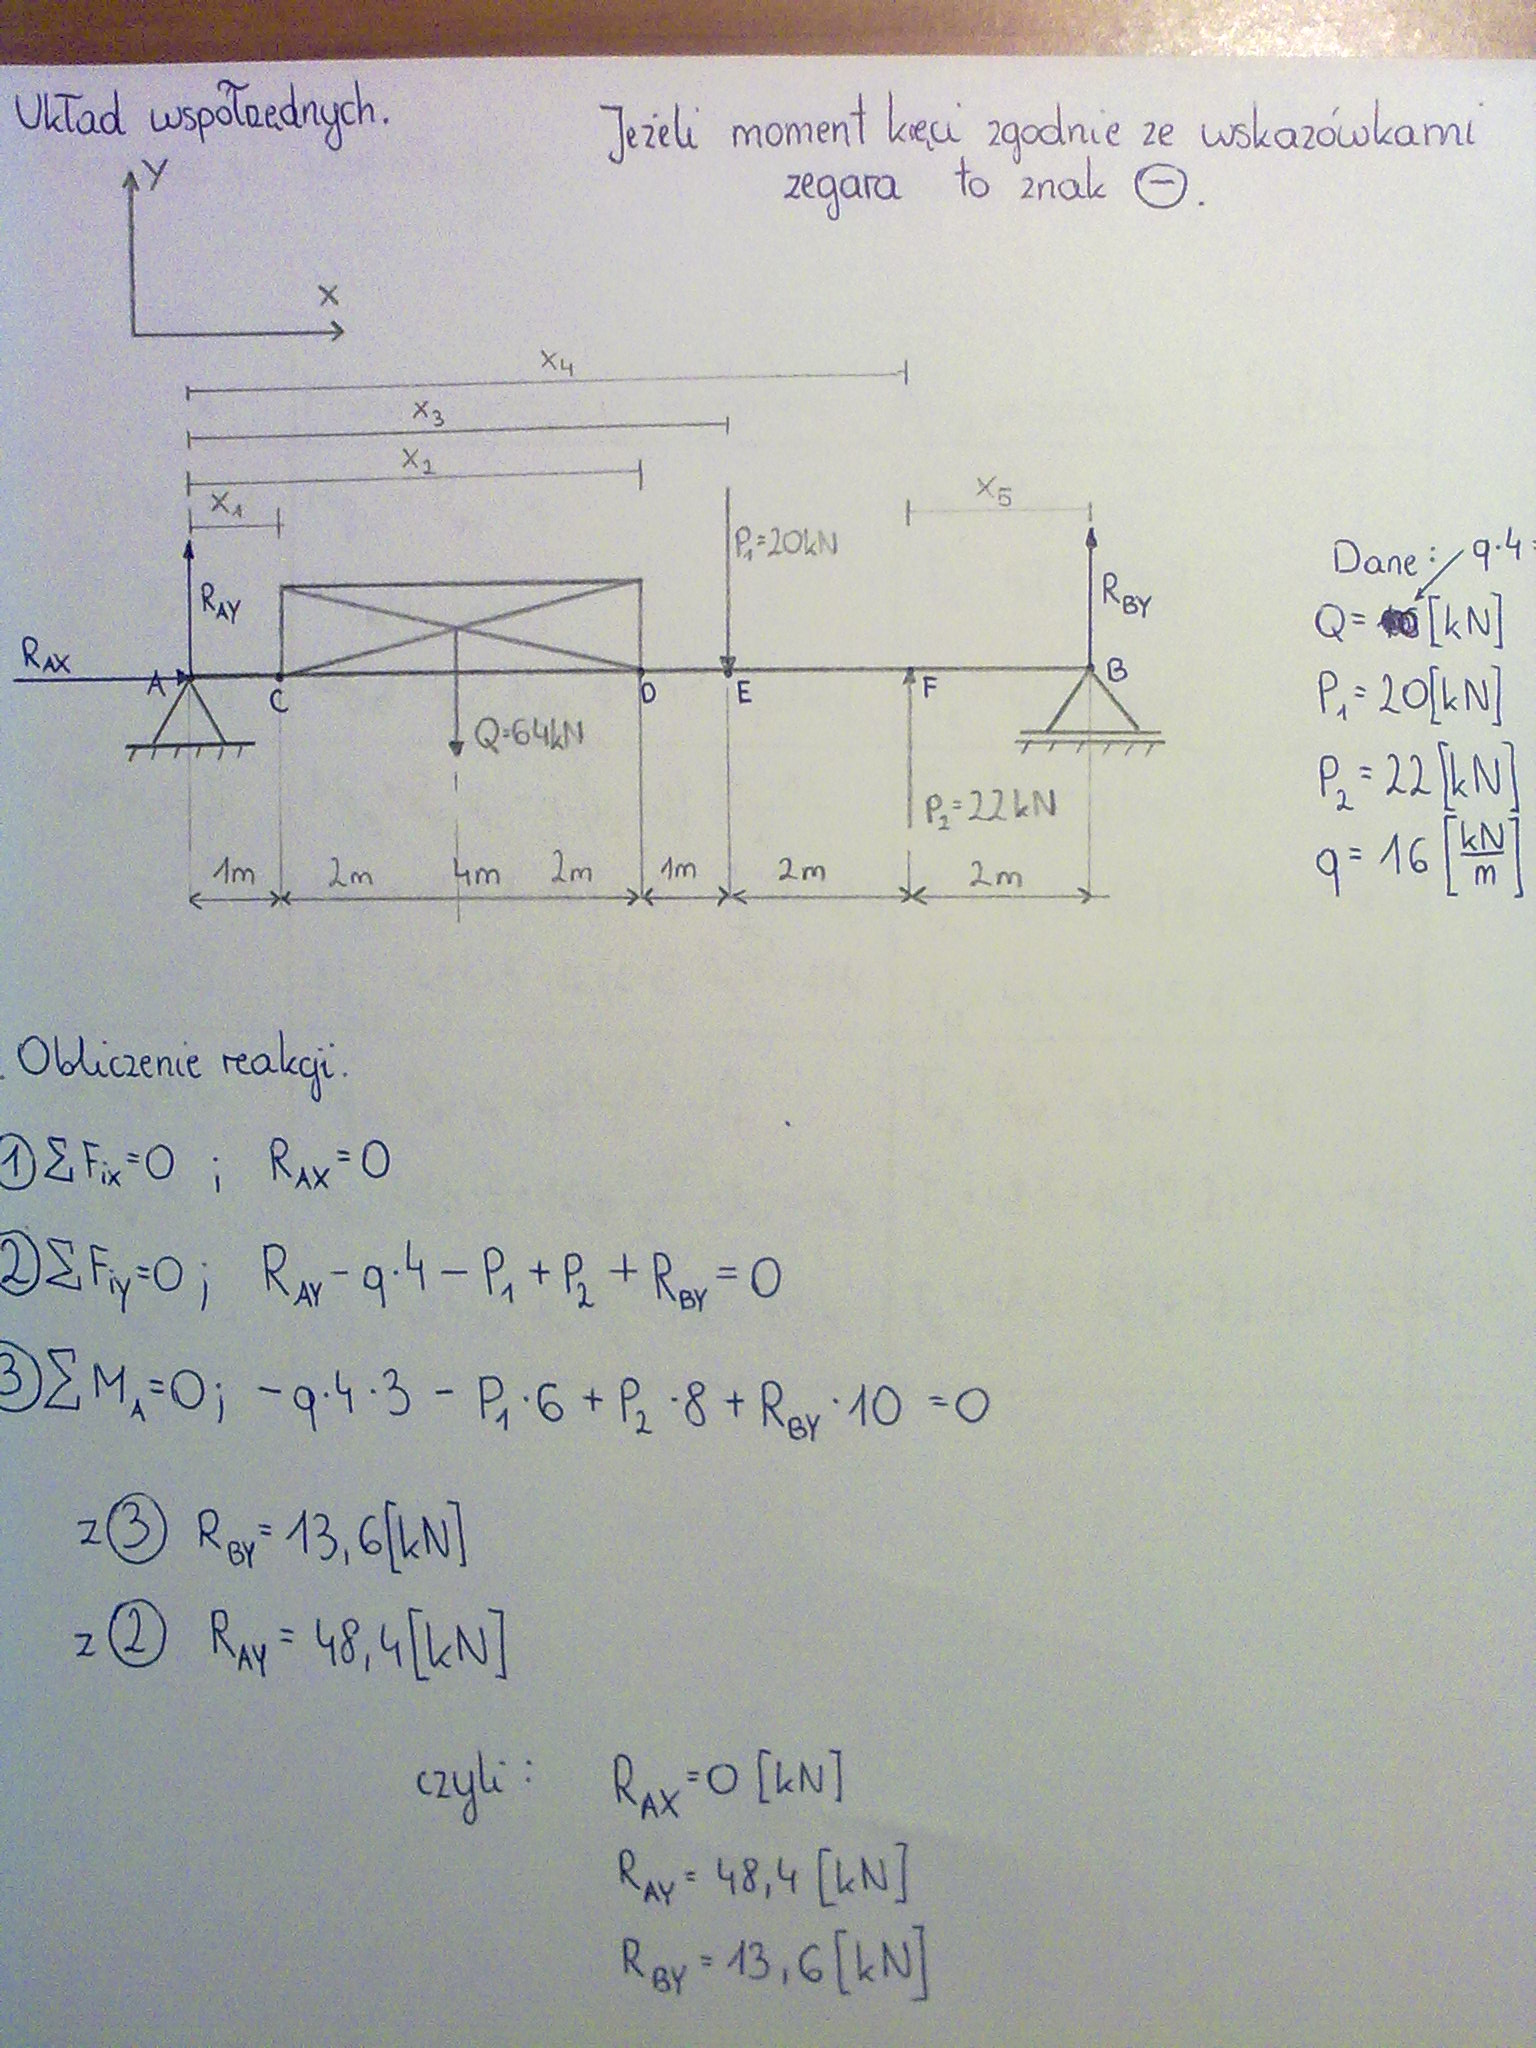 Układ współrzędnych.
Jeżeli moment kręci zgodnie ze wskazówkami
zegara to znak ⊖.
Y
X
X₄
X₃
X₂
X₁
X₅
P₁=20kN
R_AY
R_BY
R_AX
A
C
D
E
F
B
Q=64kN
P₂=22kN
1m
2m
4m
2m
1m
2m
2m
Dane: q·4=
Q= [kN]
P₁=20[kN]
P₂=22[kN]
q=16 [kN/m]
. Obliczenie reakcji.
① ΣF_ix=0 ; R_AX=0
② ΣF_iy=0 ; R_AY-q·4-P₁+P₂+R_BY=0
③ ΣM_A=0; -q·4·3 - P₁·6+P₂·8+R_BY·10=0
z ③ R_BY=13,6[kN]
z ② R_AY=48,4[kN]
czyli: R_AX=0 [kN]
R_AY=48,4 [kN]
R_BY=13,6[kN]